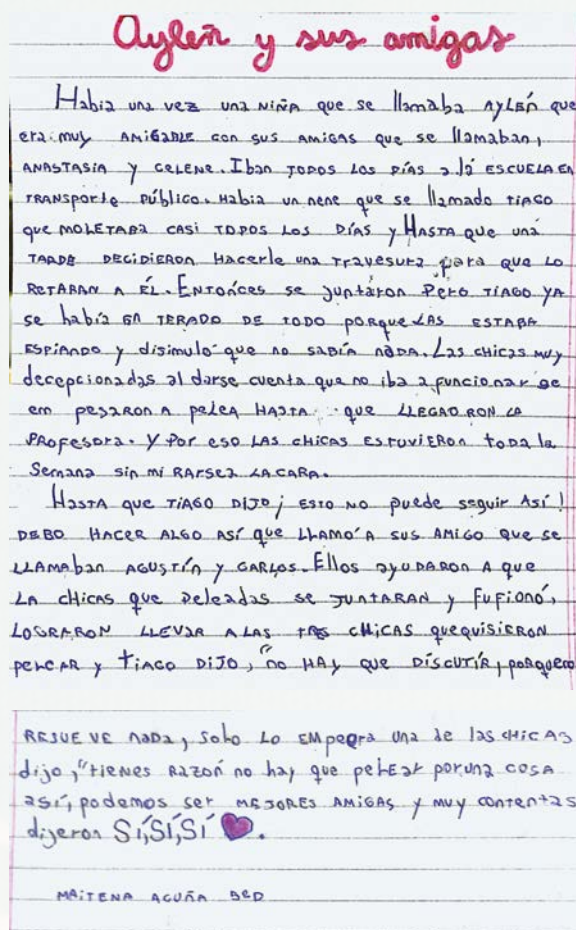 Ayleñ y sus amigas
Habia una vez una NiÑA que se llamaba AYLÉN que
era muy AMiGABLE con sus AMiGAS que se llamaban,
ANASTASIA y CELENE. Iban TODOS LOS DÍAS a lá ESCUELA EN
TRANSPORte PÚblico. Habia un nene que se llamado TIAGO
que MOLETABA CASI TODOS LOS DÍAS y HASTA que uná
TARDE DECIDIERON HACERLE una TRAVESURA para que LO
RETARAN A ÉL. ENTONCES se juntáron PERO TIAGO YA
se había EN TERADO DE TODO PORQUE LAS ESTABA
ESPIANDO y disimulo que no SABÍA NADA. LAS CHICAS MUY
decepcionadas al darse cuenta que no iba a funcionar se
em pesaron A peleA HASTA que LLEGADRON LA
PROFESORA. Y POR eso LAS CHICAS ESTUVIERON toda la
Semana sin mi RARSEA LA CARA.
HASTA que TiAGO DIJO ¡ ESTO NO puede seguir Así !
DEBO HACER ALGO ASí que LLAMO' A SUS AMIGO que se
LLAMAban AGUSTÍN y CARLOS. Ellos ayuDARON A que
LA CHICAS que peleadas se JUNTARAN y FuFionó,
LOGRARON LLEVAR A LAS TRES CHICAS que quisieron
peleAR y tiAGO DIJO, "no HAY que DISCUTIR, porque no
RESUE VE NADA, Solo LO EMpeora una de las CHICAS
dijo, "tIENES RAZÓN no hay que peleaR por una COSA
así, podemos ser MEJORES AMIGAS y muy contentas
dijeron SÍ, SÍ, SÍ.
MAITENA ACUÑA